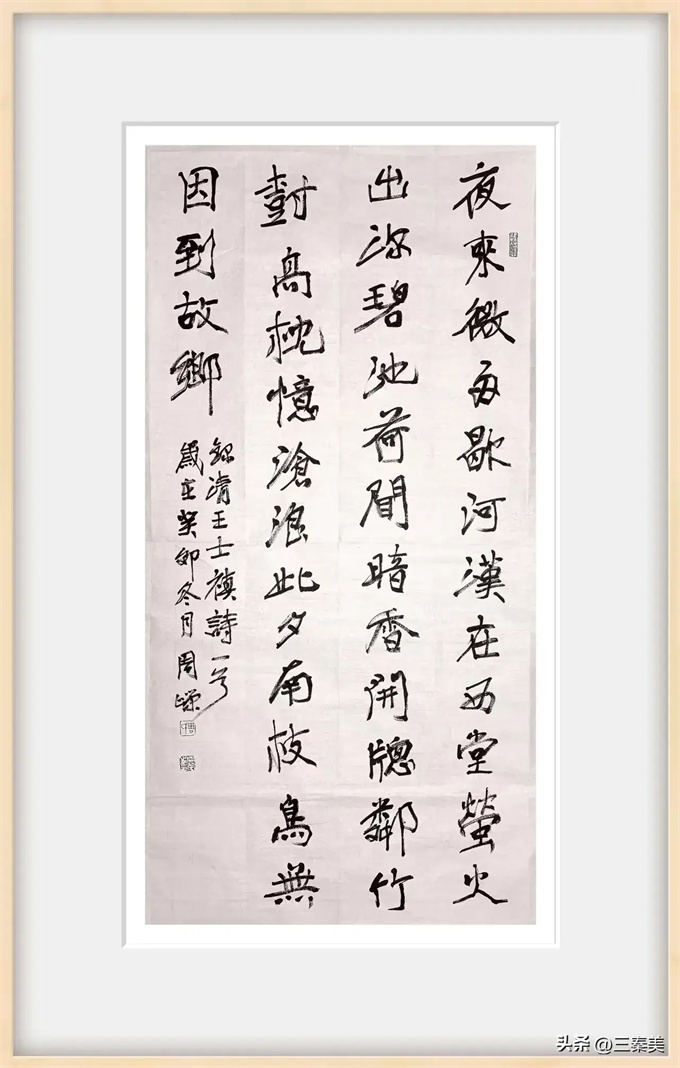 夜來微雨歇河漢在西堂螢火
出深碧池荷聞暗香開牕鄰竹
尌高枕憶滄浪此夕南枝鳥無
因到故鄉
錄清王士禛詩一首
歲在癸卯冬月周
头条 @三秦美